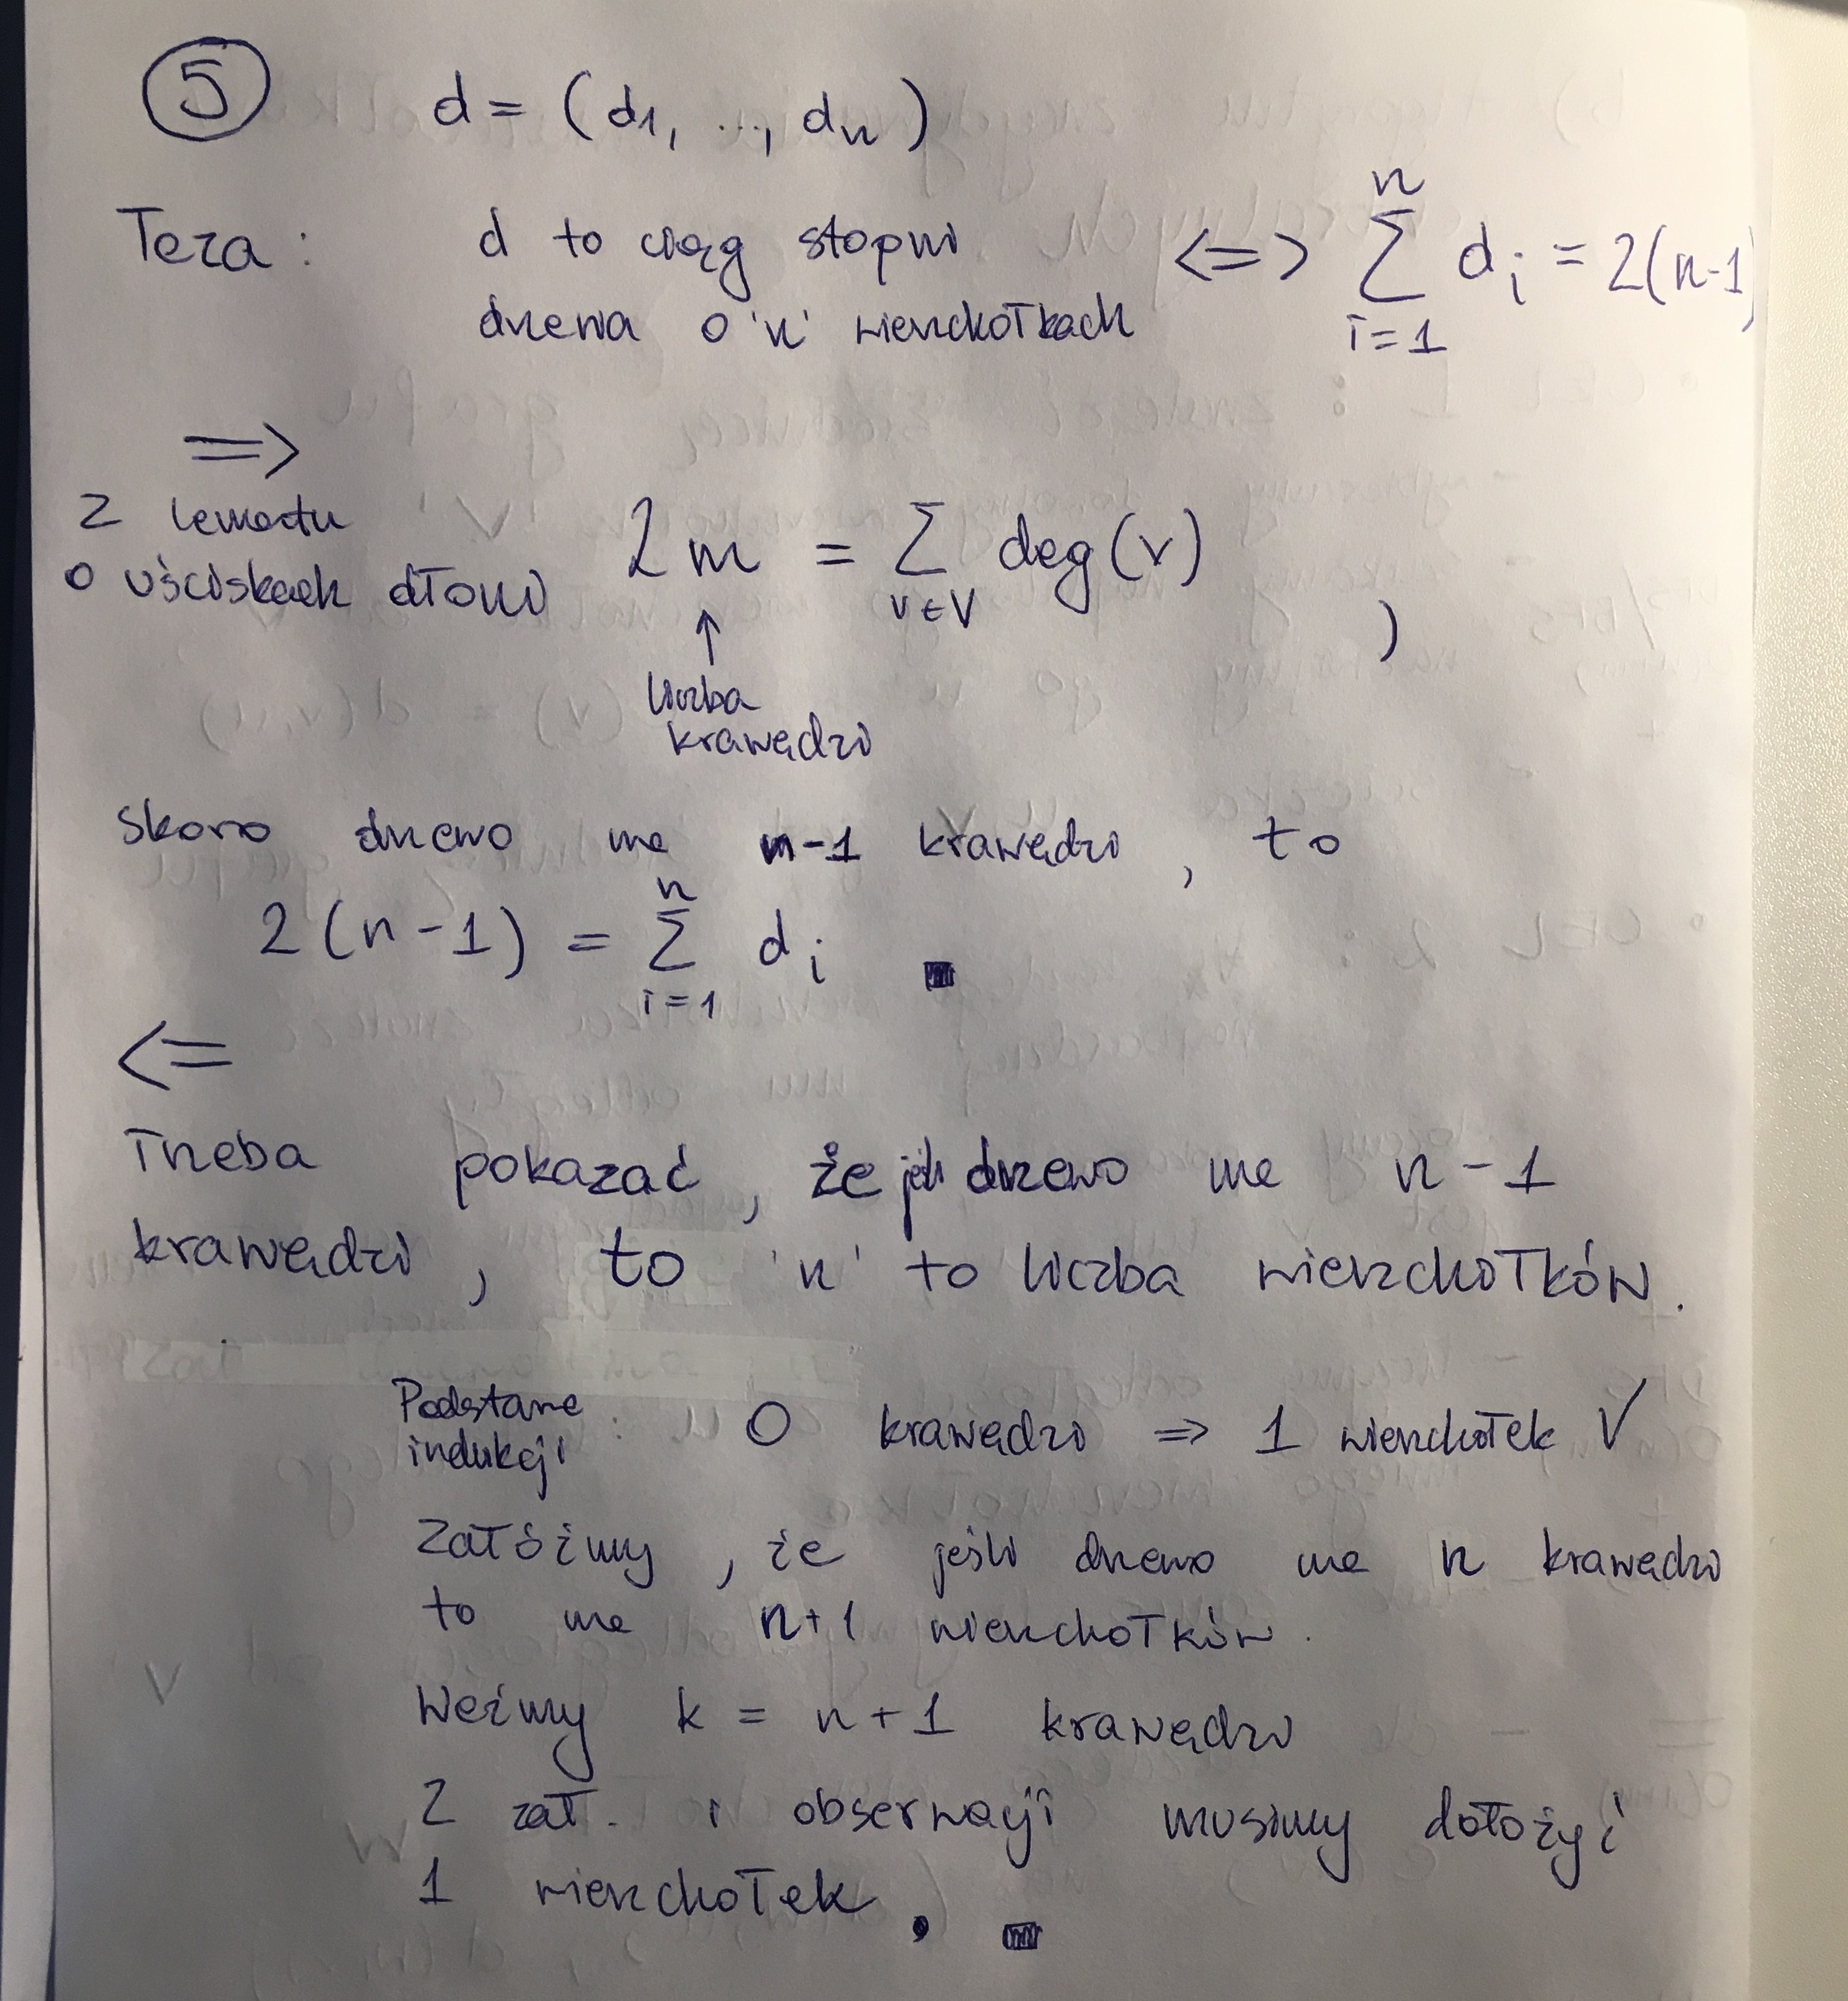 5 d = (d1, ..., dn)
Teza: d to ciąg stopni drzewa o 'n' wierzchołkach <=> n∑i=1 di = 2(n-1)
=>
Z lematu
o uściskach dłoni 2m = ∑v∈V deg(v)
)
↑
liczba
krawędzi
Skoro drzewo ma n-1 krawędzi, to
2(n-1) = n∑i=1 di ■
<=
Trzeba pokazać, że jeśli drzewo ma n-1
krawędzi, to 'n' to liczba wierzchołków.
Podstawa
indukcji : 0 krawędzi => 1 wierzchołek √
Załóżmy, że jeśli drzewo ma n krawędzi
to ma n+1 wierzchołków.
Weźmy k = n+1 krawędzi
Z zał. i obserwacji musimy dołożyć
1 wierzchołek. ■